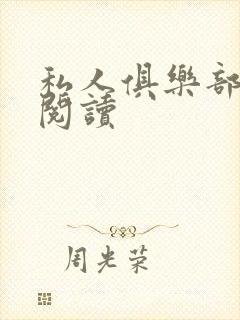 私人俱樂部
閱讀
周光荣